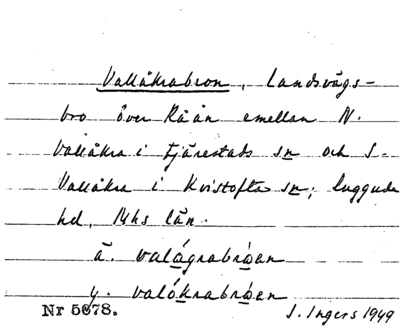 Vallåkrabron, Landsvägs-
bro över Råån emellan N.
Vallåkra i Fjärestads sn och S.
Vallåkra i Kvistofta sn, Luggude
hd, Mhs län.
ä. valågrabråen
y. valåkrabråen
Nr 5678. I. Ingers 1949